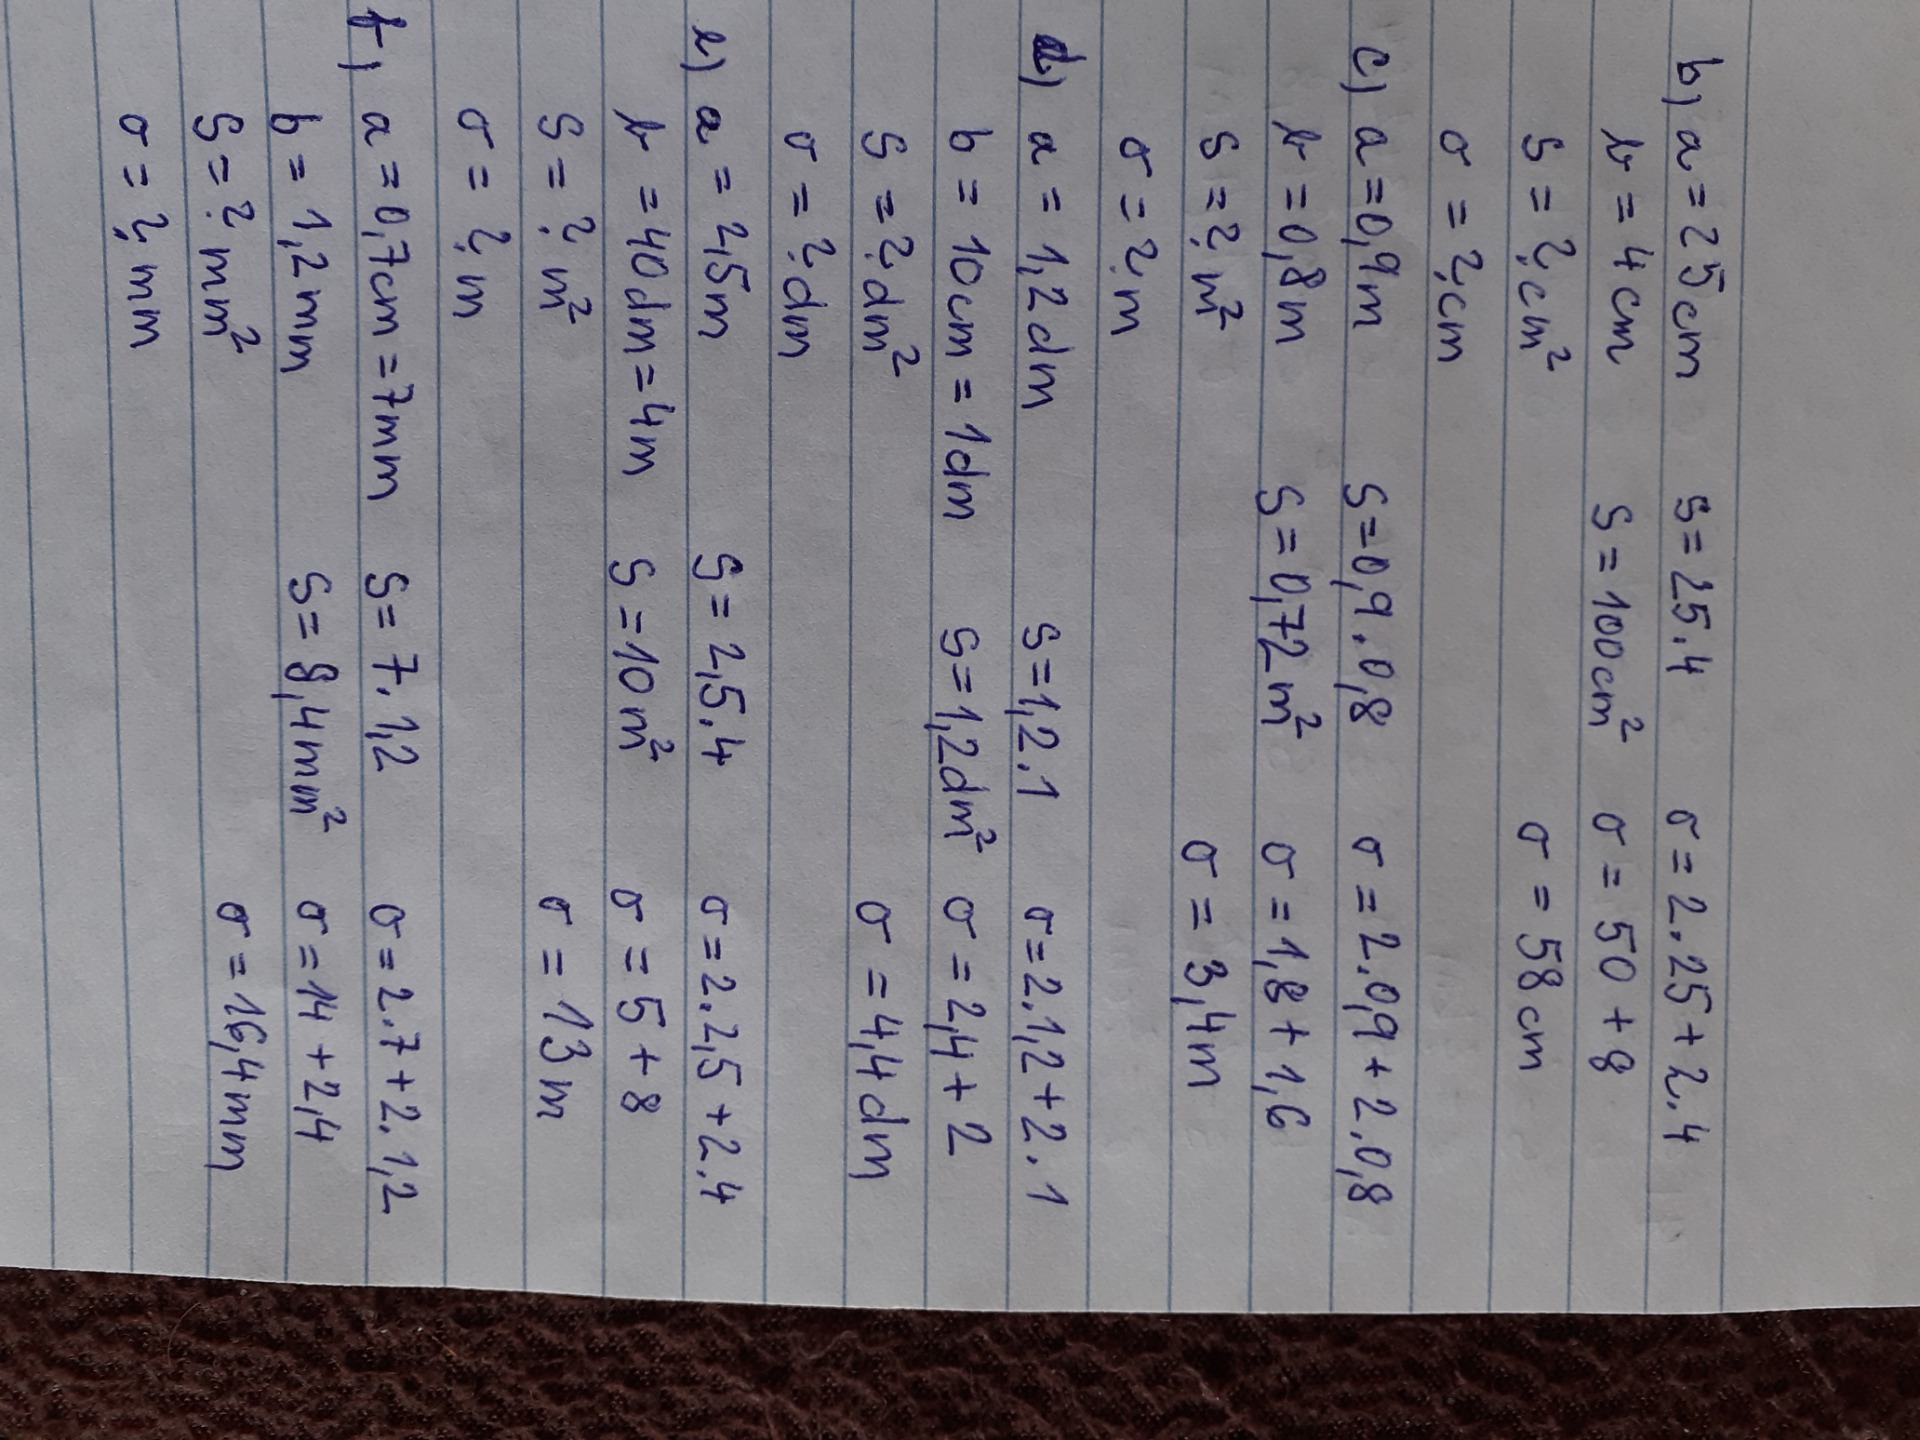 b) a = 25cm S = 25.4 σ = 2.25 + 2.4
b = 4cm S = 100cm² σ = 50 + 8
S = ? cm² σ = 58cm
σ = ? cm
c) a = 0,9m S = 0,9.0,8 σ = 2.0,9 + 2.0,8
b = 0,8m S = 0,72m² σ = 1,8 + 1,6
S = ? m² σ = 3,4m
σ = ? m
d) a = 1,2dm S = 1,2.1 σ = 2.1,2 + 2.1
b = 10cm = 1dm S = 1,2dm² σ = 2,4 + 2
S = ? dm² σ = 4,4dm
σ = ? dm
e) a = 2,5m S = 2,5.4 σ = 2.2,5 + 2.4
b = 40dm = 4m S = 10m² σ = 5 + 8
S = ? m² σ = 13m
σ = ? m
f) a = 0,7cm = 7mm S = 7.1,2 σ = 2.7 + 2.1,2
b = 1,2mm S = 8,4mm² σ = 14 + 2,4
S = ? mm² σ = 16,4mm
σ = ? mm